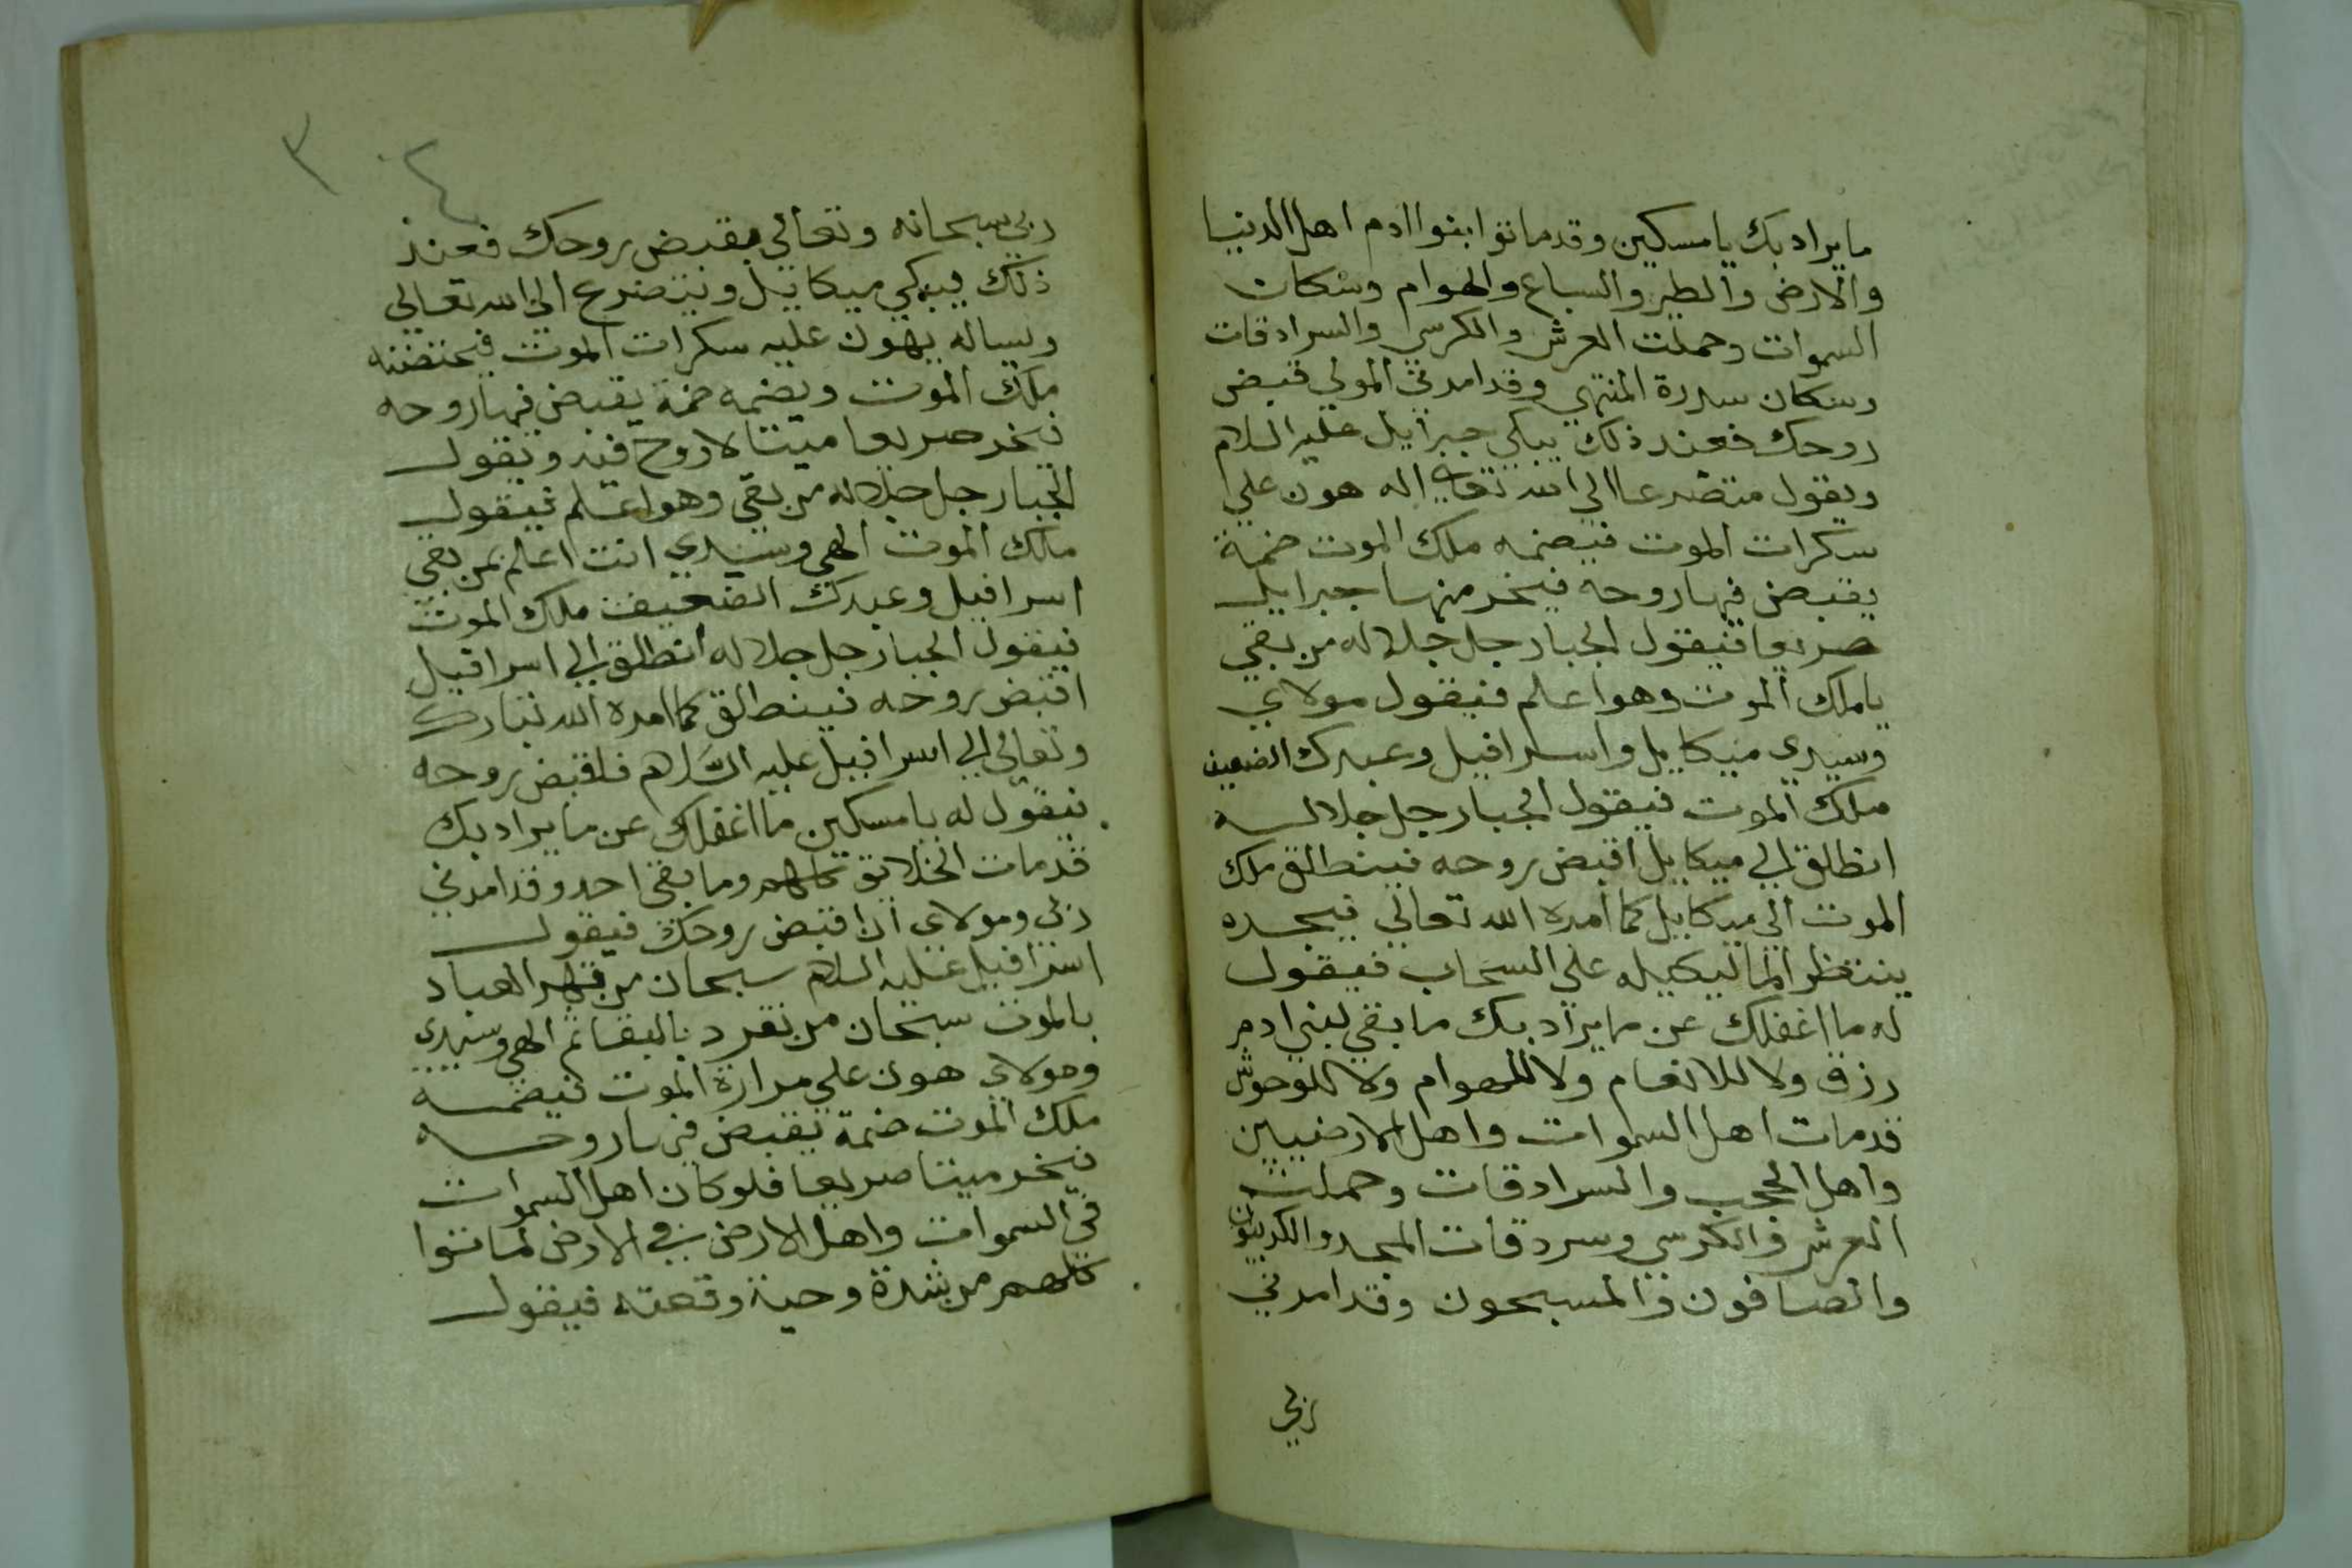 ما يراد بك يا مسكين وقد ماتوا بنوا ادم اهل الدنيا
والارض والطير والسباع والهوام وسكان
السموات وحملت العرش والكرسي والسرادقات
وسكان سدرة المنتهي وقد امرني المولي قبض
روحك فعند ذلك يبكي جبرايل عليه السلام
ويقول متضرعا الي الله تعالي اله هون علي
سكرات الموت فيضمه ملك الموت ضمة
يقبض فيها روحه فيخر منها جبرايل
صريعا فيقول الجبار جل جلاله من بقي
يا ملك الموت وهو اعلم فيقول مولاي
وسيدي ميكايل واسرافيل وعبدك الضعيف
ملك الموت فيقول الجبار جل جلاله
انطلق الي ميكايل اقبض روحه فينطلق ملك
الموت الي ميكايل كما امره الله تعالي فيجده
ينتظر الما ليكيله علي السحاب فيقول
له ما اغفلك عن ما يراد بك ما بقي لبني ادم
رزق ولا للانعام ولا للهوام ولا للوحوش
قد مات اهل السموات واهل الارضيين
واهل الحجب والسرادقات وحملت
العرش والكرسي وسردقات المجد والكربيون
والصافون والمسبحون وقد امرني
ربي
٣٠٢
ربي سبحانه وتعالي بقبض روحك فعند
ذلك يبكي ميكاييل ويتضرع الي الله تعالي
ويساله يهون عليه سكرات الموت فيحتضنه
ملك الموت ويضمه ضمة يقبض فيها روحه
فيخر صريعا ميتا لا روح فيه ويقول
الجبار جل جلاله من بقي وهو اعلم فيقول
ملك الموت الهي وسيدي انت اعلم بمن بقي
اسرافيل وعبدك الضعيف ملك الموت
فيقول الجبار جل جلاله انطلق الي اسرافيل
اقبض روحه فينطلق كما امره الله تبارك
وتعالي الي اسرافيل عليه السلام فاقبض روحه
فيقول له يا مسكين ما اغفلك عن ما يراد بك
قد مات الخلايق كلهم وما بقي احد وقد امرني
ربي ومولاي ان اقبض روحك فيقول
اسرافيل عليه السلام سبحان من قهر العباد
بالموت سبحان من تفرد بالبقا ثم الهي وسيدي
ومولاي هون علي مرارة الموت فيضمه
ملك الموت ضمة يقبض فيها روحه
فيخر ميتا صريعا فلو كان اهل السموات
في السموات واهل الارض في الارض لماتوا
كلهم من شدة وحية وقعته فيقول